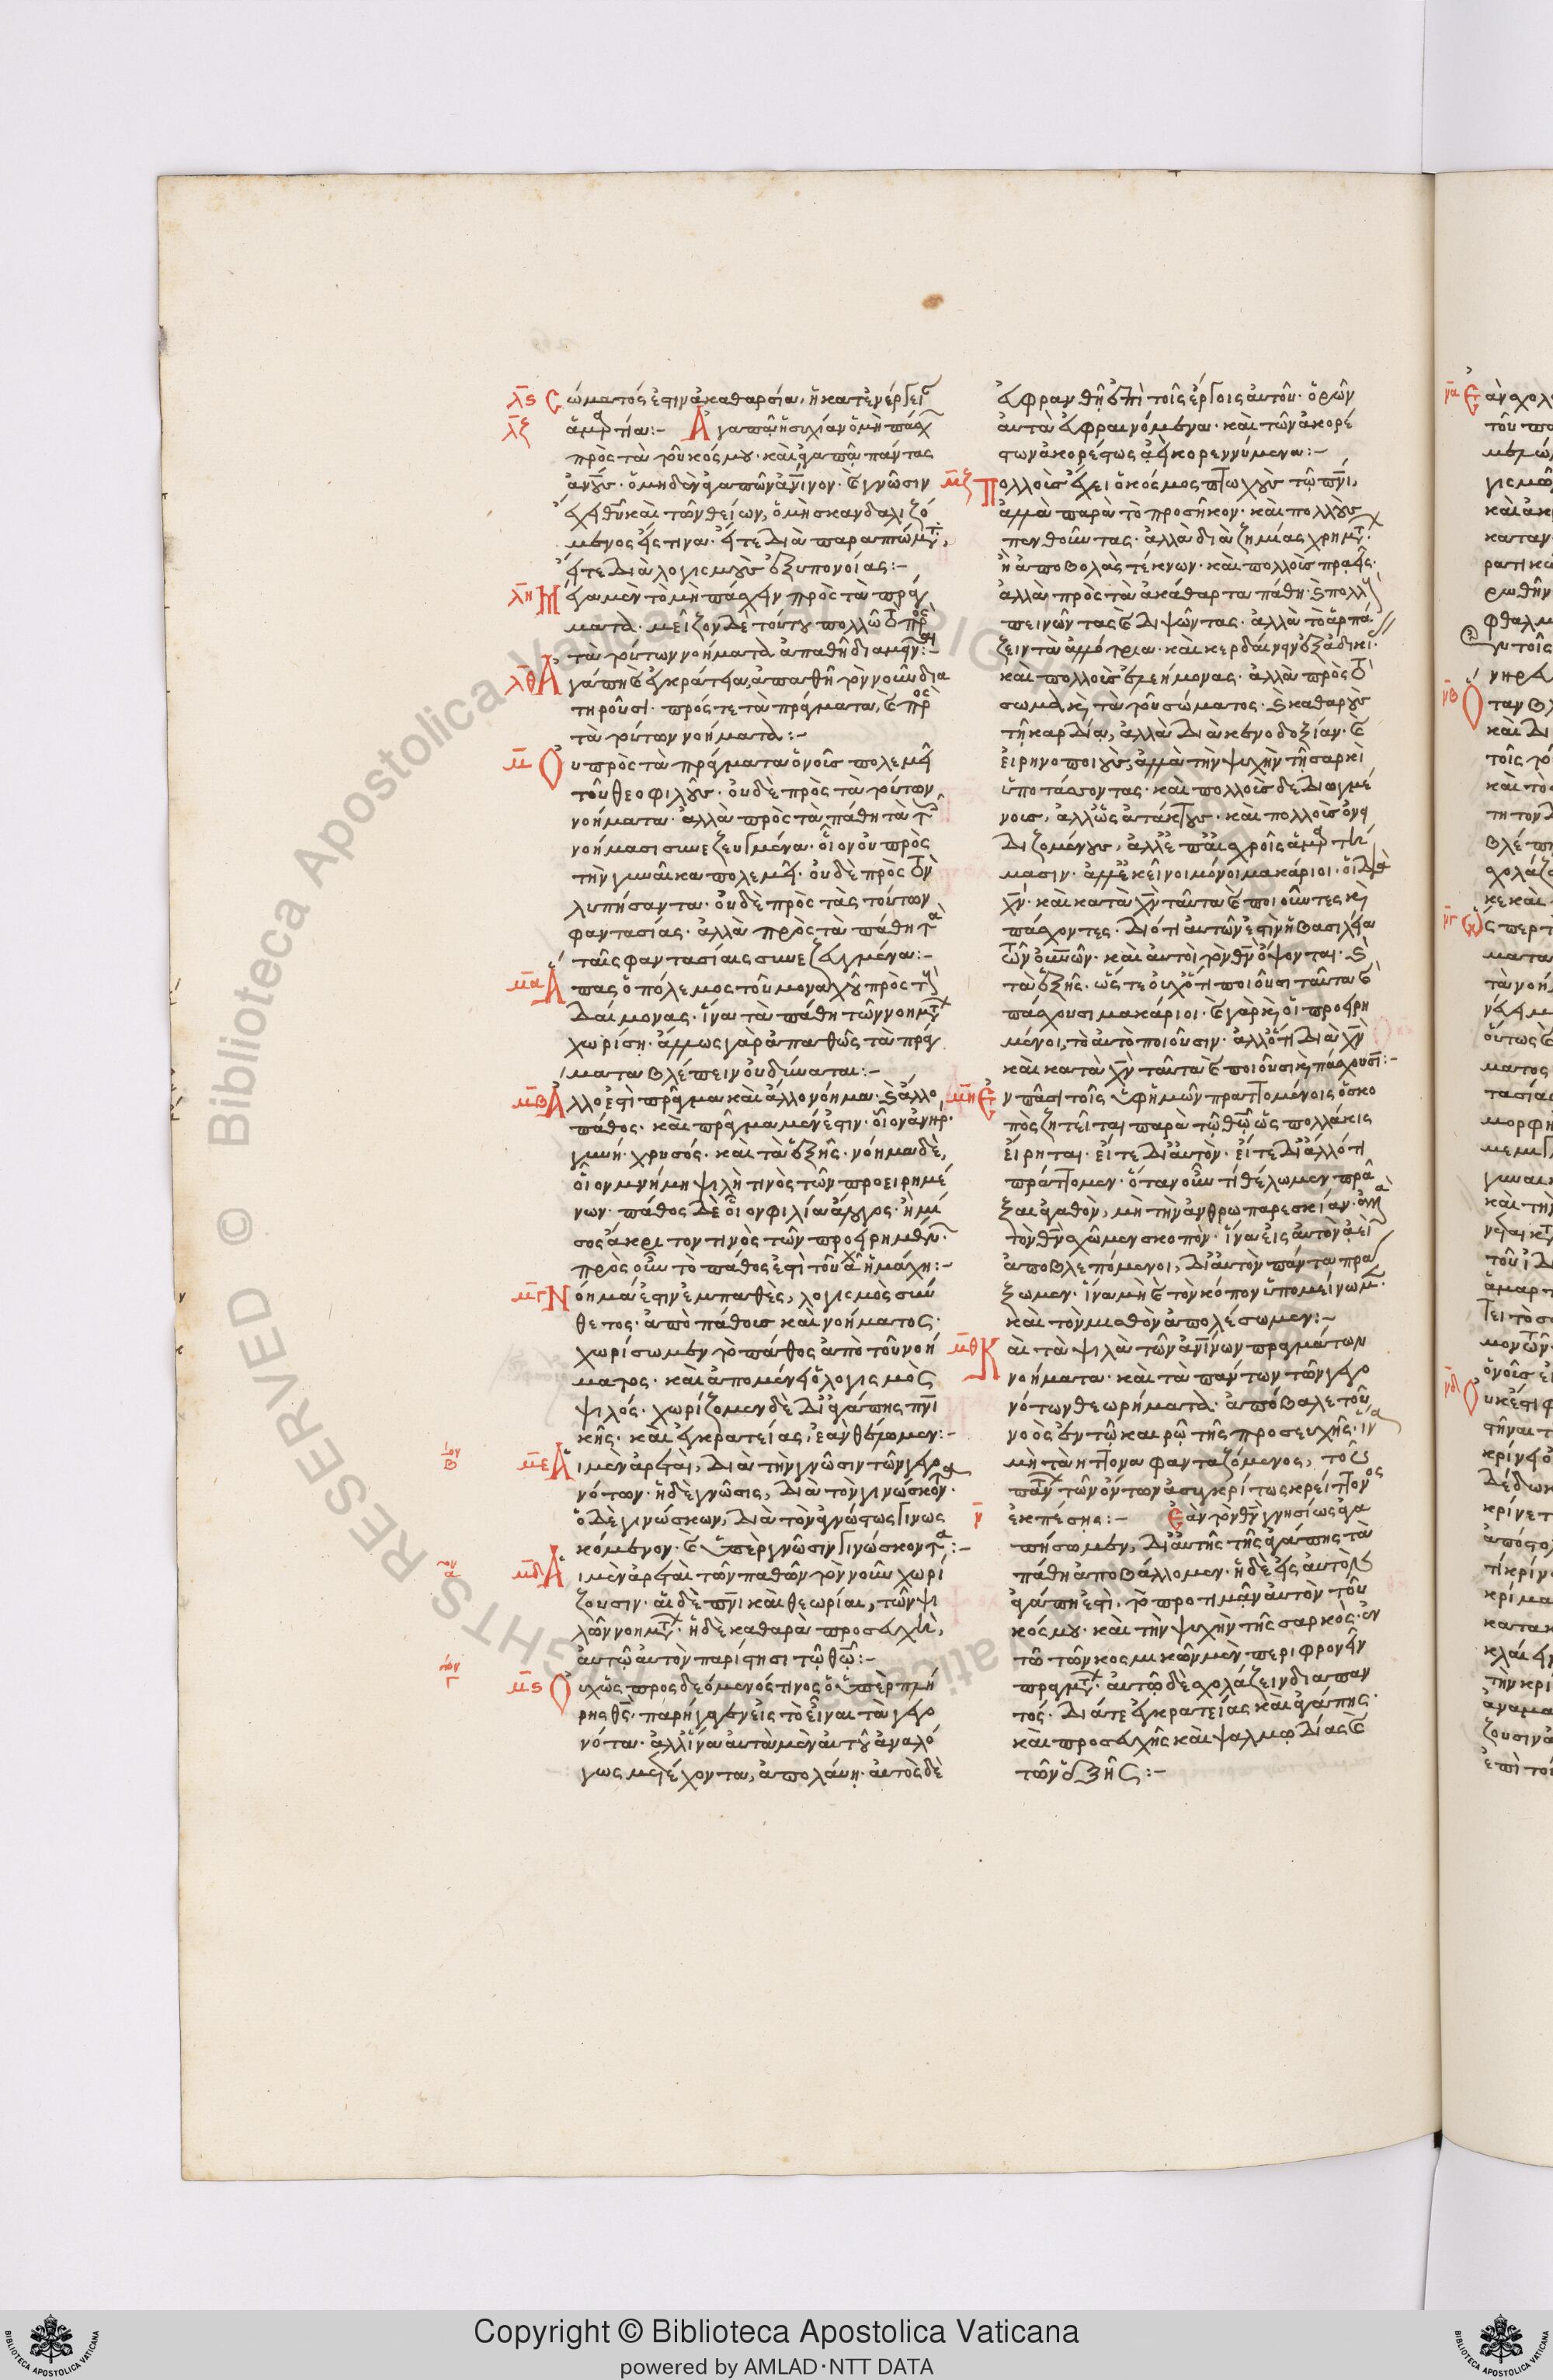 λς Σώματός ἐστιν ἀκαθαρσία, ἡ κατ' ἐνέργειαν
λζ ἁμαρτία:– Ἀγαπᾷ ἡσυχίαν ὁ μὴ πάσχων
πρὸς τὰ τοῦ κόσμου· καὶ ἀγαπᾷ πάντας
ἀνους· ὁ μηδὲν ἀγαπῶν ἀνινον· καὶ γνῶσιν
ἔχει θυ καὶ τῶν θείων, ὁ μὴ σκανδαλιζό
μενος εἴς τινα· εἴτε διὰ παραπτώματα,
εἴτε διὰ λογισμοὺς ἐξ ὑπονοίας:–
λη Μέγα μὲν τὸ μὴ πάσχειν πρὸς τὰ πράγ
ματα· μεῖζον δὲ τούτου πολλῷ τὸ πρὸς
τὰ τούτων νοήματα ἀπαθῆ διαμεῖναι:–
λθ Ἀγάπη καὶ ἐγκράτεια, ἀπαθῆ τὸν νοῦν δια
τηροῦσι· πρός τε τὰ πράγματα, καὶ πρὸς
τὰ τούτων νοήματα:–
μ Οὐ πρὸς τὰ πράγματα ὁ νοῦς πολεμεῖ
τοῦ θεοφιλοῦς· οὐδὲ πρὸς τὰ τούτων
νοήματα· ἀλλὰ πρὸς τὰ πάθη τὰ τοῖς
νοήμασι συνεζευγμένα· οἷον οὐ πρὸς
τὴν γυναῖκα πολεμεῖ· οὐδὲ πρὸς τὸν
λυπήσαντα· οὐδὲ πρὸς τὰς τούτων
φαντασίας· ἀλλὰ πρὸς τὰ πάθη τὰ
ταῖς φαντασίαις συνεζευγμένα:–
μα Ἅπας ὁ πόλεμος τοῦ μοναχοῦ πρὸς τοὺς
δαίμονας· ἵνα τὰ πάθη τῶν νοημάτων
χωρίσῃ· ἄλλως γὰρ ἀπαθῶς τὰ πράγ
ματα βλέπειν οὐ δύναται:–
μβ Ἄλλο ἐστὶ πρᾶγμα καὶ ἄλλο νόημα· καὶ ἄλλο
πάθος· καὶ πρᾶγμα μέν ἐστιν· οἷον ἀνήρ·
γυνή· χρυσός· καὶ τὰ ἑξῆς· νόημα δὲ,
οἷον μνήμη ψιλή τινος τῶν προειρημέ
νων· πάθος δὲ οἷον φιλία ἄλογος· ἢ μῖ
σος ἄκριτον τινὸς τῶν προειρημένων·
πρὸς οὖν τὸ πάθος ἐστὶ τοῦ μοναχοῦ ἡ μάχη:–
μγ Νόημά ἐστιν ἐμπαθὲς, λογισμὸς σύν
θετος· ἀπὸ πάθους καὶ νοήματος·
χωρίσωμεν τὸ πάθος ἀπὸ τοῦ νοή
ματος· καὶ ἀπομένει ὁ λογισμὸς
ψιλός· χωρίζομεν δὲ δι' ἀγάπης πνι
κῆς· καὶ ἐγκρατείας, ἐὰν θέλωμεν:–
με Αἱ μὲν ἀρεταὶ, διὰ τὴν γνῶσιν τῶν γεγο
νότων· ἡ δὲ γνῶσις, διὰ τὸν γινώσκοντα·
ὁ δὲ γινώσκων, διὰ τὸν ἀγνώστως γινωσ
κόμενον· καὶ ὑπὲρ γνῶσιν γινώσκοντα:–
μδ Αἱ μὲν ἀρεταὶ τῶν παθῶν τὸν νοῦν χωρί
ζουσιν· αἱ δὲ πνικαὶ θεωρίαι, τῶν ψι
λῶν νοημάτων· ἡ δὲ καθαρὰ προσευχὴ,
αὐτῷ αὐτὸν παρίστησι τῷ θῶ:–
μς Οὐχ ὡς προσδεόμενός τινος ὁ ὑπερπλή
ρης θς· παρήγαγεν εἰς τὸ εἶναι τὰ γεγο
νότα· ἀλλ' ἵνα αὐτὰ μὲν αὐτοῦ ἀναλό
γως μετέχοντα, ἀπολαύῃ· αὐτὸς δὲ
εὐφρανθῇ ἐπὶ τοῖς ἔργοις αὐτοῦ· ὁρῶν
αὐτὰ εὐφραινόμενα· καὶ τῶν ἀκορέ
στων ἀκορέστως ἀεὶ κορεννύμενα:–
μζ Πολλοὺς ἔχει ὁ κόσμος πτωχοὺς τῷ πνι,
ἀλλὰ παρὰ τὸ προσῆκον· καὶ πολλοὺς
πενθοῦντας· ἀλλὰ διὰ ζημίας χρημάτων·
ἢ ἀποβολὰς τέκνων· καὶ πολλοὺς πραεῖς·
ἀλλὰ πρὸς τὰ ἀκάθαρτα πάθη· καὶ πολλοὺς
πεινῶντας καὶ διψῶντας· ἀλλὰ τὸ ἁρπά
ζειν τὰ ἀλλότρια· καὶ κερδαίνειν ἐξ ἀδικίας·
καὶ πολλοὺς ἐλεήμονας· ἀλλὰ πρὸς τὸ
σῶμα καὶ τὰ τοῦ σώματος· καὶ καθαροὺς
τῇ καρδίᾳ, ἀλλὰ διὰ κενοδοξίαν· καὶ
εἰρηνοποιοὺς, ἀλλὰ τὴν ψυχὴν τῇ σαρκὶ
ὑποτάσσοντας· καὶ πολλοὺς δεδιωγμέ
νους, ἀλλ' ὡς ἀτάκτους· καὶ πολλοὺς ὀνει
διζομένους, ἀλλ' ἐπ' αἰσχροῖς ἁμαρτή
μασιν· ἀλλ' ἐκεῖνοι μόνοι μακάριοι· οἱ διὰ
χν· καὶ κατὰ χν ταῦτα καὶ ποιοῦντες καὶ
πάσχοντες· διότι αὐτῶν ἐστὶν ἡ βασιλεία
τῶν οὐνῶν· καὶ αὐτοὶ τὸν θν ὄψονται· καὶ
τὰ ἑξῆς· ὥστε οὐχ ὅτι ποιοῦσι ταῦτα καὶ
πάσχουσι μακάριοι· καὶ γὰρ καὶ οἱ προειρη
μένοι, τὸ αὐτὸ ποιοῦσιν· ἀλλ' ὅτι διὰ χν
καὶ κατὰ χν ταῦτα καὶ ποιοῦσι καὶ πάσχουσι:–
μη Ἐν πᾶσι τοῖς ὑφ' ἡμῶν πραττομένοις ὁ σκο
πὸς ζητεῖται παρὰ τῷ θῶ ὡς πολλάκις
εἴρηται· εἴτε δι' αὐτὸν· εἴτε δι' ἄλλό τι
πράττομεν· ὅταν οὖν τὶ θέλωμεν πρᾶ
ξαι ἀγαθὸν, μὴ τὴν ἀνθρωπαρεσκίαν· ἀλλὰ
τὸν θν ἔχωμεν σκοπὸν· ἵνα εἰς αὐτὸν ἀεὶ
ἀποβλεπόμενοι, δι' αὐτὸν πάντα πρά
ξωμεν· ἵνα μὴ καὶ τὸν κόπον ὑπομείνωμεν·
καὶ τὸν μισθὸν ἀπολέσωμεν:–
μθ Καὶ τὰ ψιλὰ τῶν ἀνίνων πραγμάτων
νοήματα· καὶ τὰ πάντων τῶν γεγο
νότων θεωρήματα· ἀπόβαλε τοῦ
νοὸς ἐν τῷ καιρῷ τῆς προσευχῆς· ἵνα
μὴ τὰ ἥττονα φανταζόμενος, τοῦ
πάντων τῶν ὄντων ἀσυγκρίτως κρείττονος
ν ἐκπέσῃς:– Ἐὰν τὸν θν γνησίως ἀγα
πήσωμεν, δι' αὐτῆς τῆς ἀγάπης τὰ
πάθη ἀποβάλλομεν· ἡ δὲ εἰς αὐτὸν
ἀγάπη ἐστὶ, τὸ προτιμᾷν αὐτὸν τοῦ
κόσμου· καὶ τὴν ψυχὴν τῆς σαρκὸς· ἐν
τῷ τῶν κοσμικῶν μὲν περιφρονεῖν
πραγμάτων· αὐτῷ δὲ σχολάζειν διαπαν
τός· διά τε ἐγκρατείας καὶ ἀγάπης·
καὶ προσευχῆς καὶ ψαλμῳδίας καὶ
τῶν ἑξῆς:–
Copyright © Biblioteca Apostolica Vaticana
powered by AMLAD·NTT DATA